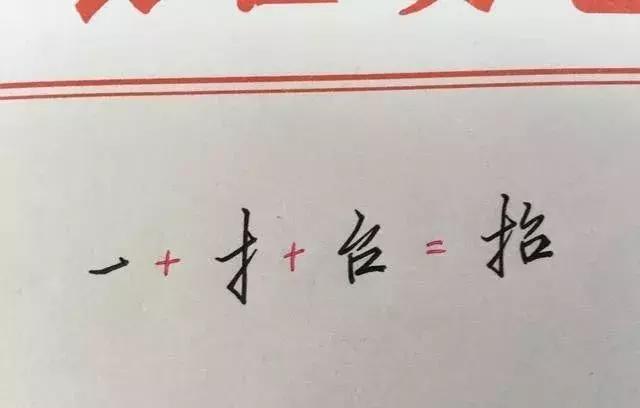 一 + 扌 + 台 = 抬